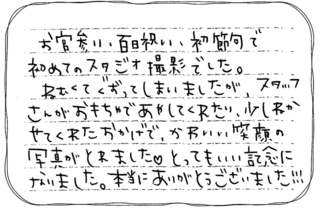 お宮参り、百日祝い、初節句で
初めてのスタジオ撮影でした。
ねむくてぐずってしまいましたが、スタッフ
さんがおもちゃであやしてくれたり、少しねか
せてくれたおかげで、かわいい笑顔の
写真がとれました♡とってもいい記念に
なりました。本当にありがとうございました!!!